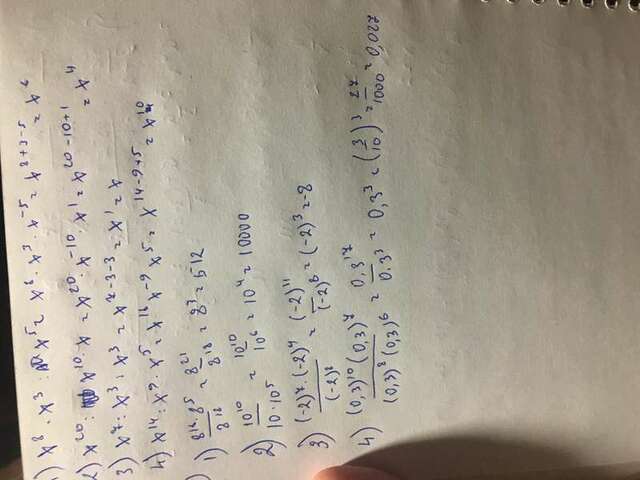 1) x⁸ · x³ : x⁵ = x⁸ · x³ · x⁻⁵ = x⁸⁺³⁻⁵ = x⁶
2) x²⁰ : x¹⁰ · x = x²⁰ · x⁻¹⁰ · x¹ = x²⁰⁻¹⁰⁺¹ = x¹¹
3) x⁷ : x³ : x³ = x⁷⁻³⁻³ = x¹ = x
4) x¹⁴ : x⁹ · x⁵ = x¹⁴ · x⁻⁹ x⁵ = x¹⁴⁻⁹⁺⁵ = x¹⁰
1) 8¹⁶·8⁵/8¹⁸ = 8²¹/8¹⁸ = 8³ = 512
2) 10¹⁰/10·10⁵ = 10¹⁰/10⁶ = 10⁴ = 10000
3) (-2)⁷·(-2)⁴/(-2)⁸ = (-2)¹¹/(-2)⁸ = (-2)³ = -8
4) (0,3)¹⁰(0,3)⁷/(0,3)⁸(0,3)⁶ = 0,3¹⁷/0,3 = 0,3³ = (3/10)³ = 27/1000 = 0,027